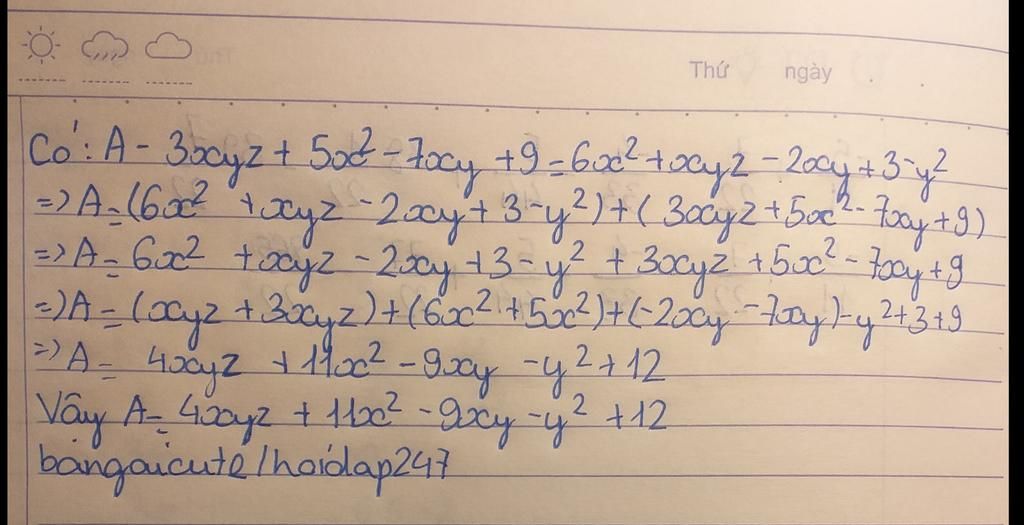 Thứ ngày
Có: A - 3xyz + 5x² - 7xy + 9 = 6x² + xyz - 2xy + 3 - y²
=> A = (6x² + xyz - 2xy + 3 - y²) + (3xyz + 5x² - 7xy + 9)
=> A = 6x² + xyz - 2xy + 3 - y² + 3xyz + 5x² - 7xy + 9
=> A = (xyz + 3xyz) + (6x² + 5x²) + (-2xy - 7xy) - y² + 3 + 9
=> A = 4xyz + 11x² - 9xy - y² + 12
Vậy A = 4xyz + 11x² - 9xy - y² + 12
bangaicute/hoidap247